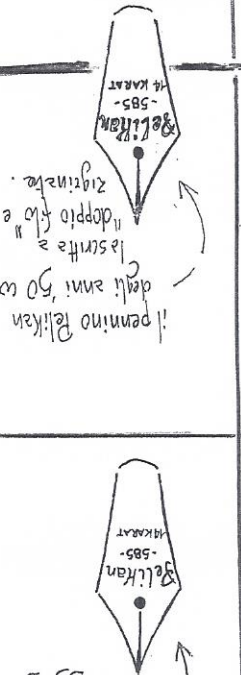 Pelikan
-585-
14 KARAT
il pennino Pelikan
degli anni '50 co
la scritta a
"doppio filo" e
zigrinate.
Pelikan
-585-
14 KARAT